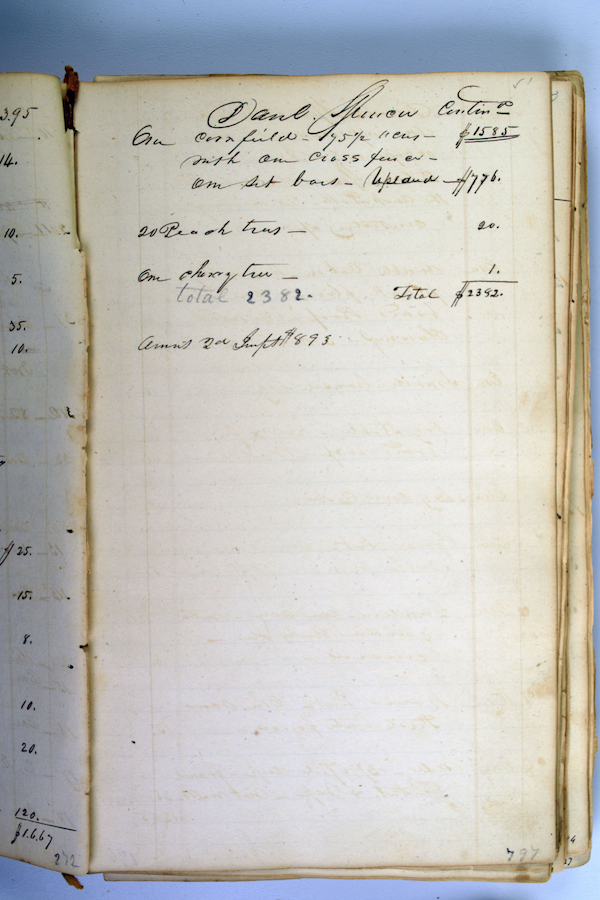 3.95
14.
10.
5.
35.
10.
$ 25.
15.
8.
10.
20.
120.
$1.6.67
272
51
Danl. Spencer Contind
One cornfield — 75½ acres — $1585
with one cross fence —
one set bars — Upland — $776.
20 Peach trees — 20.
One cherry tree — 1.
total 2382. Total $2382.
Amus 2d Impts $893
797